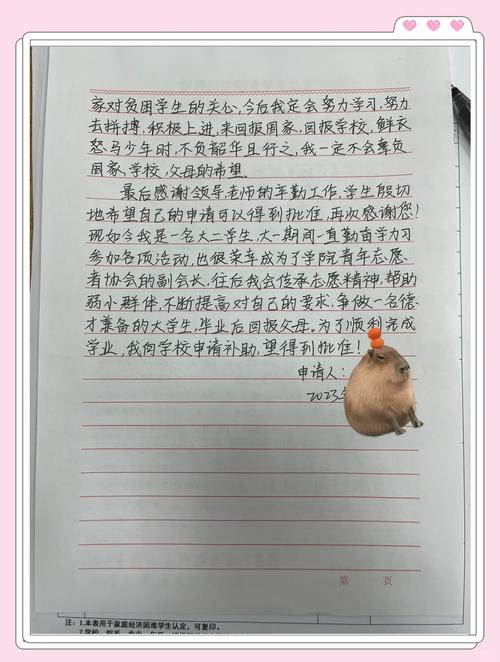 家对贫困学生的关心,今后我定会努力学习,努力
去拼搏,积极上进,来回报国家,回报学校,鲜衣
怒马少年时,不负韶华且行之,我一定不会辜负
国家,学校,父母的希望.
最后感谢领导,老师的辛勤工作,学生殷切
地希望自己的申请可以得到批准,再次感谢您!
现如今我是一名大二学生,大一期间一直勤苗学习
参加各项活动,也很荣幸成为了学院青年志愿
者协会的副会长,往后我会传承志愿精神,帮助
弱小群体,不断提高对自己的要求,争做一名德
才兼备的大学生,毕业后回报父母.为了顺利完成
学业,我向学校申请补助,望得到批准!
申请人:
2023
第 页
注:1.本表用于家庭经济困难学生认定,可复印。